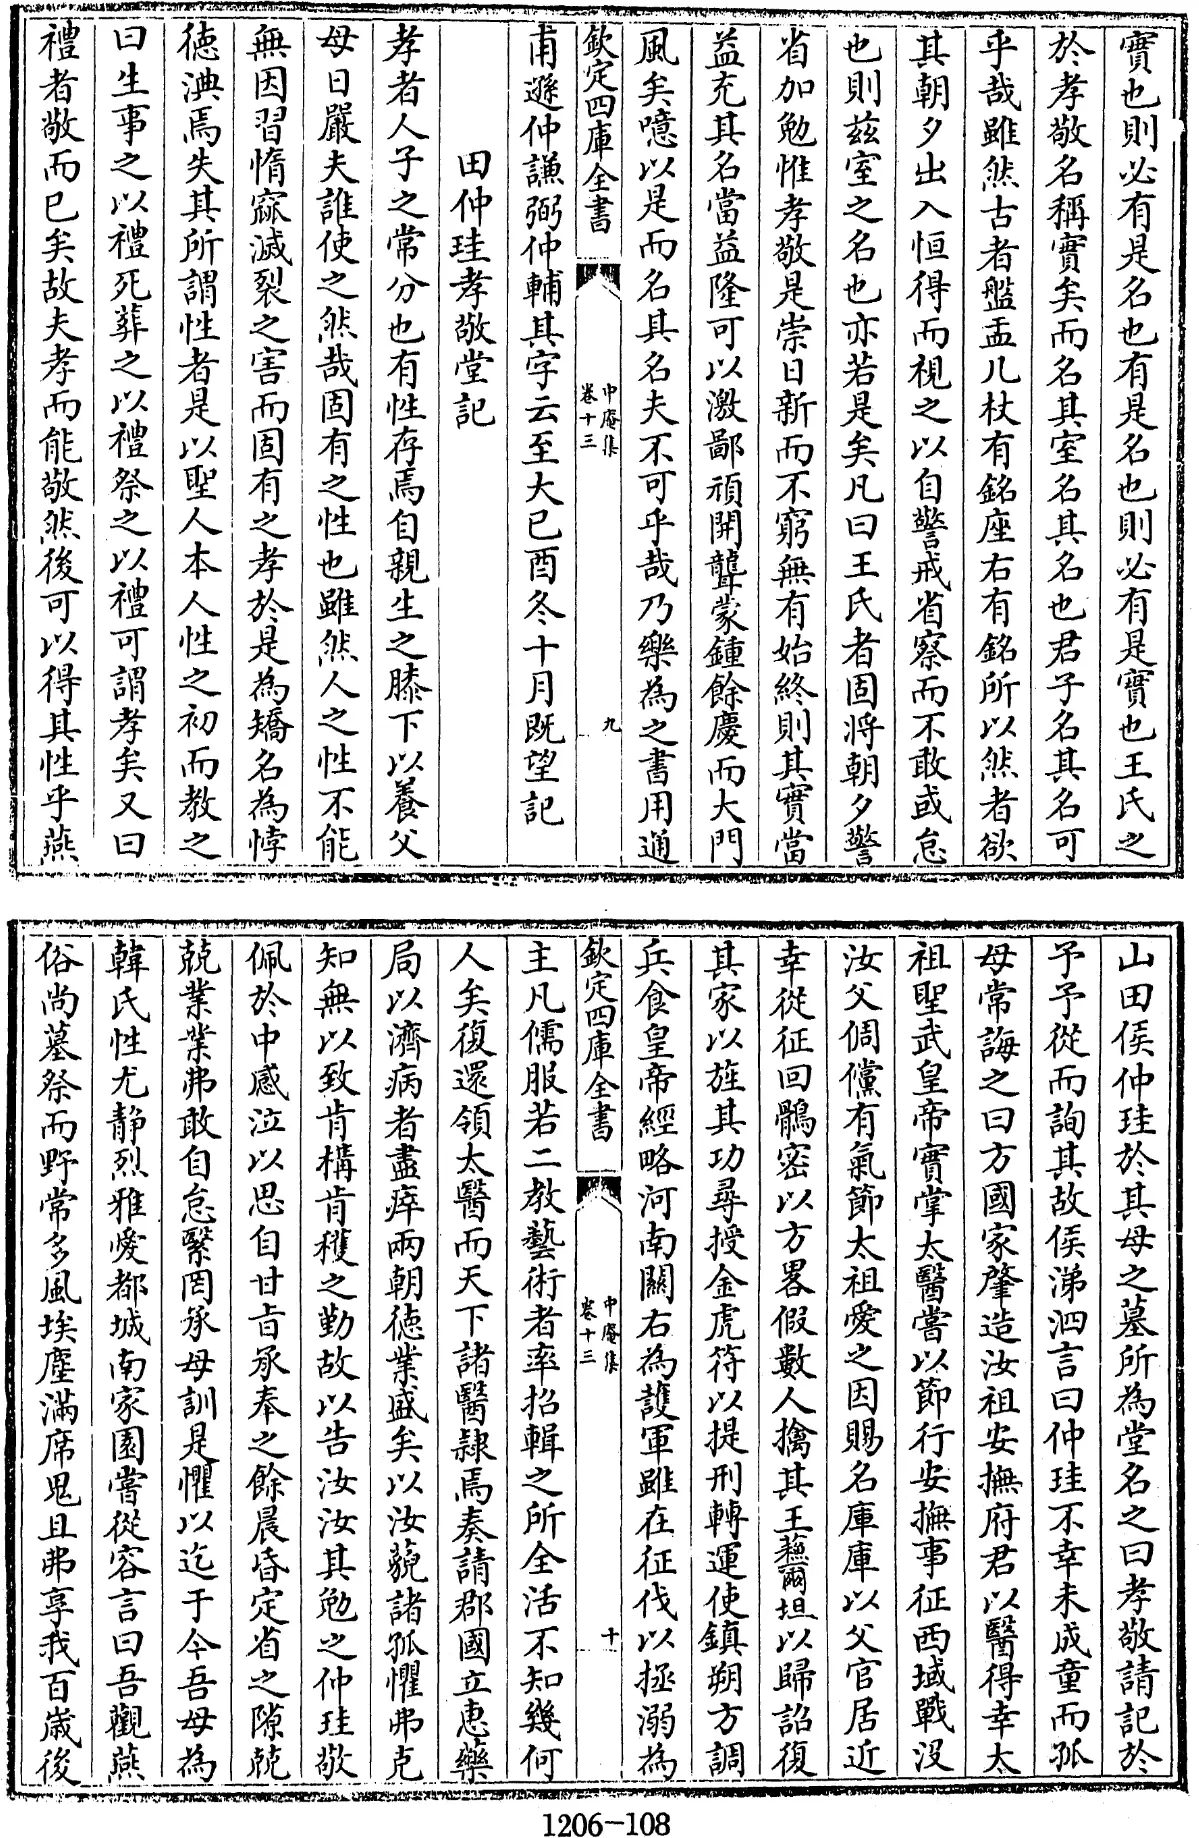 實也則必有是名也有是名也則必有是實也王氏之
於孝敬名稱實矣而名其室名其名也君子名其名可
乎哉雖然古者盤盂几杖有銘座右有銘所以然者欲
其朝夕出入恒得而視之以自警戒省察而不敢或怠
也則茲室之名也亦若是矣凡曰王氏者固將朝夕警
省加勉惟孝敬是崇日新而不窮無有始終則其實當
益充其名當益隆可以激鄙頑開聾蒙鍾餘慶而大門
風矣噫以是而名其名夫不可乎哉乃樂為之書用通
欽定四庫全書
中庵集
卷十三
九
甫遜仲謙弼仲輔其字云至大己酉冬十月既望記
田仲珪孝敬堂記
孝者人子之常分也有性存焉自親生之膝下以養父
母日嚴夫誰使之然哉固有之性也雖然人之性不能
無因習惰窳滅裂之害而固有之孝於是為矯名為悖
德淟焉失其所謂性者是以聖人本人性之初而教之
曰生事之以禮死葬之以禮祭之以禮可謂孝矣又曰
禮者敬而已矣故夫孝而能敬然後可以得其性乎燕
山田侯仲珪於其母之墓所為堂名之曰孝敬請記於
予予從而詢其故侯涕泗言曰仲珪不幸未成童而孤
母常誨之曰方國家肇造汝祖安撫府君以醫得幸太
祖聖武皇帝實掌太醫嘗以節行安撫事征西域戰没
汝父倜儻有氣節太祖愛之因賜名庫庫以父官居近
幸從征回鶻密以方畧假數人擒其王蘓爾坦以歸詔復
其家以旌其功尋授金虎符以提刑轉運使鎮朔方調
兵食皇帝經略河南關右為護軍雖在征伐以拯溺為
欽定四庫全書
中庵集
卷十三
十
主凡儒服若二教藝術者率招輯之所全活不知幾何
人矣復還領太醫而天下諸醫隸焉奏請郡國立惠藥
局以濟病者盡瘁兩朝德業盛矣以汝藐諸孤懼弗克
知無以致肯構肯穫之勤故以告汝汝其勉之仲珪敬
佩於中感泣以思自甘旨承奉之餘晨昏定省之隙兢
兢業業弗敢自怠繄罔承母訓是懼以迄于今吾母為
韓氏性尤静烈雅愛都城南家園嘗從容言曰吾觀燕
俗尚墓祭而野常多風埃塵滿席鬼且弗享我百歲後
1206-108